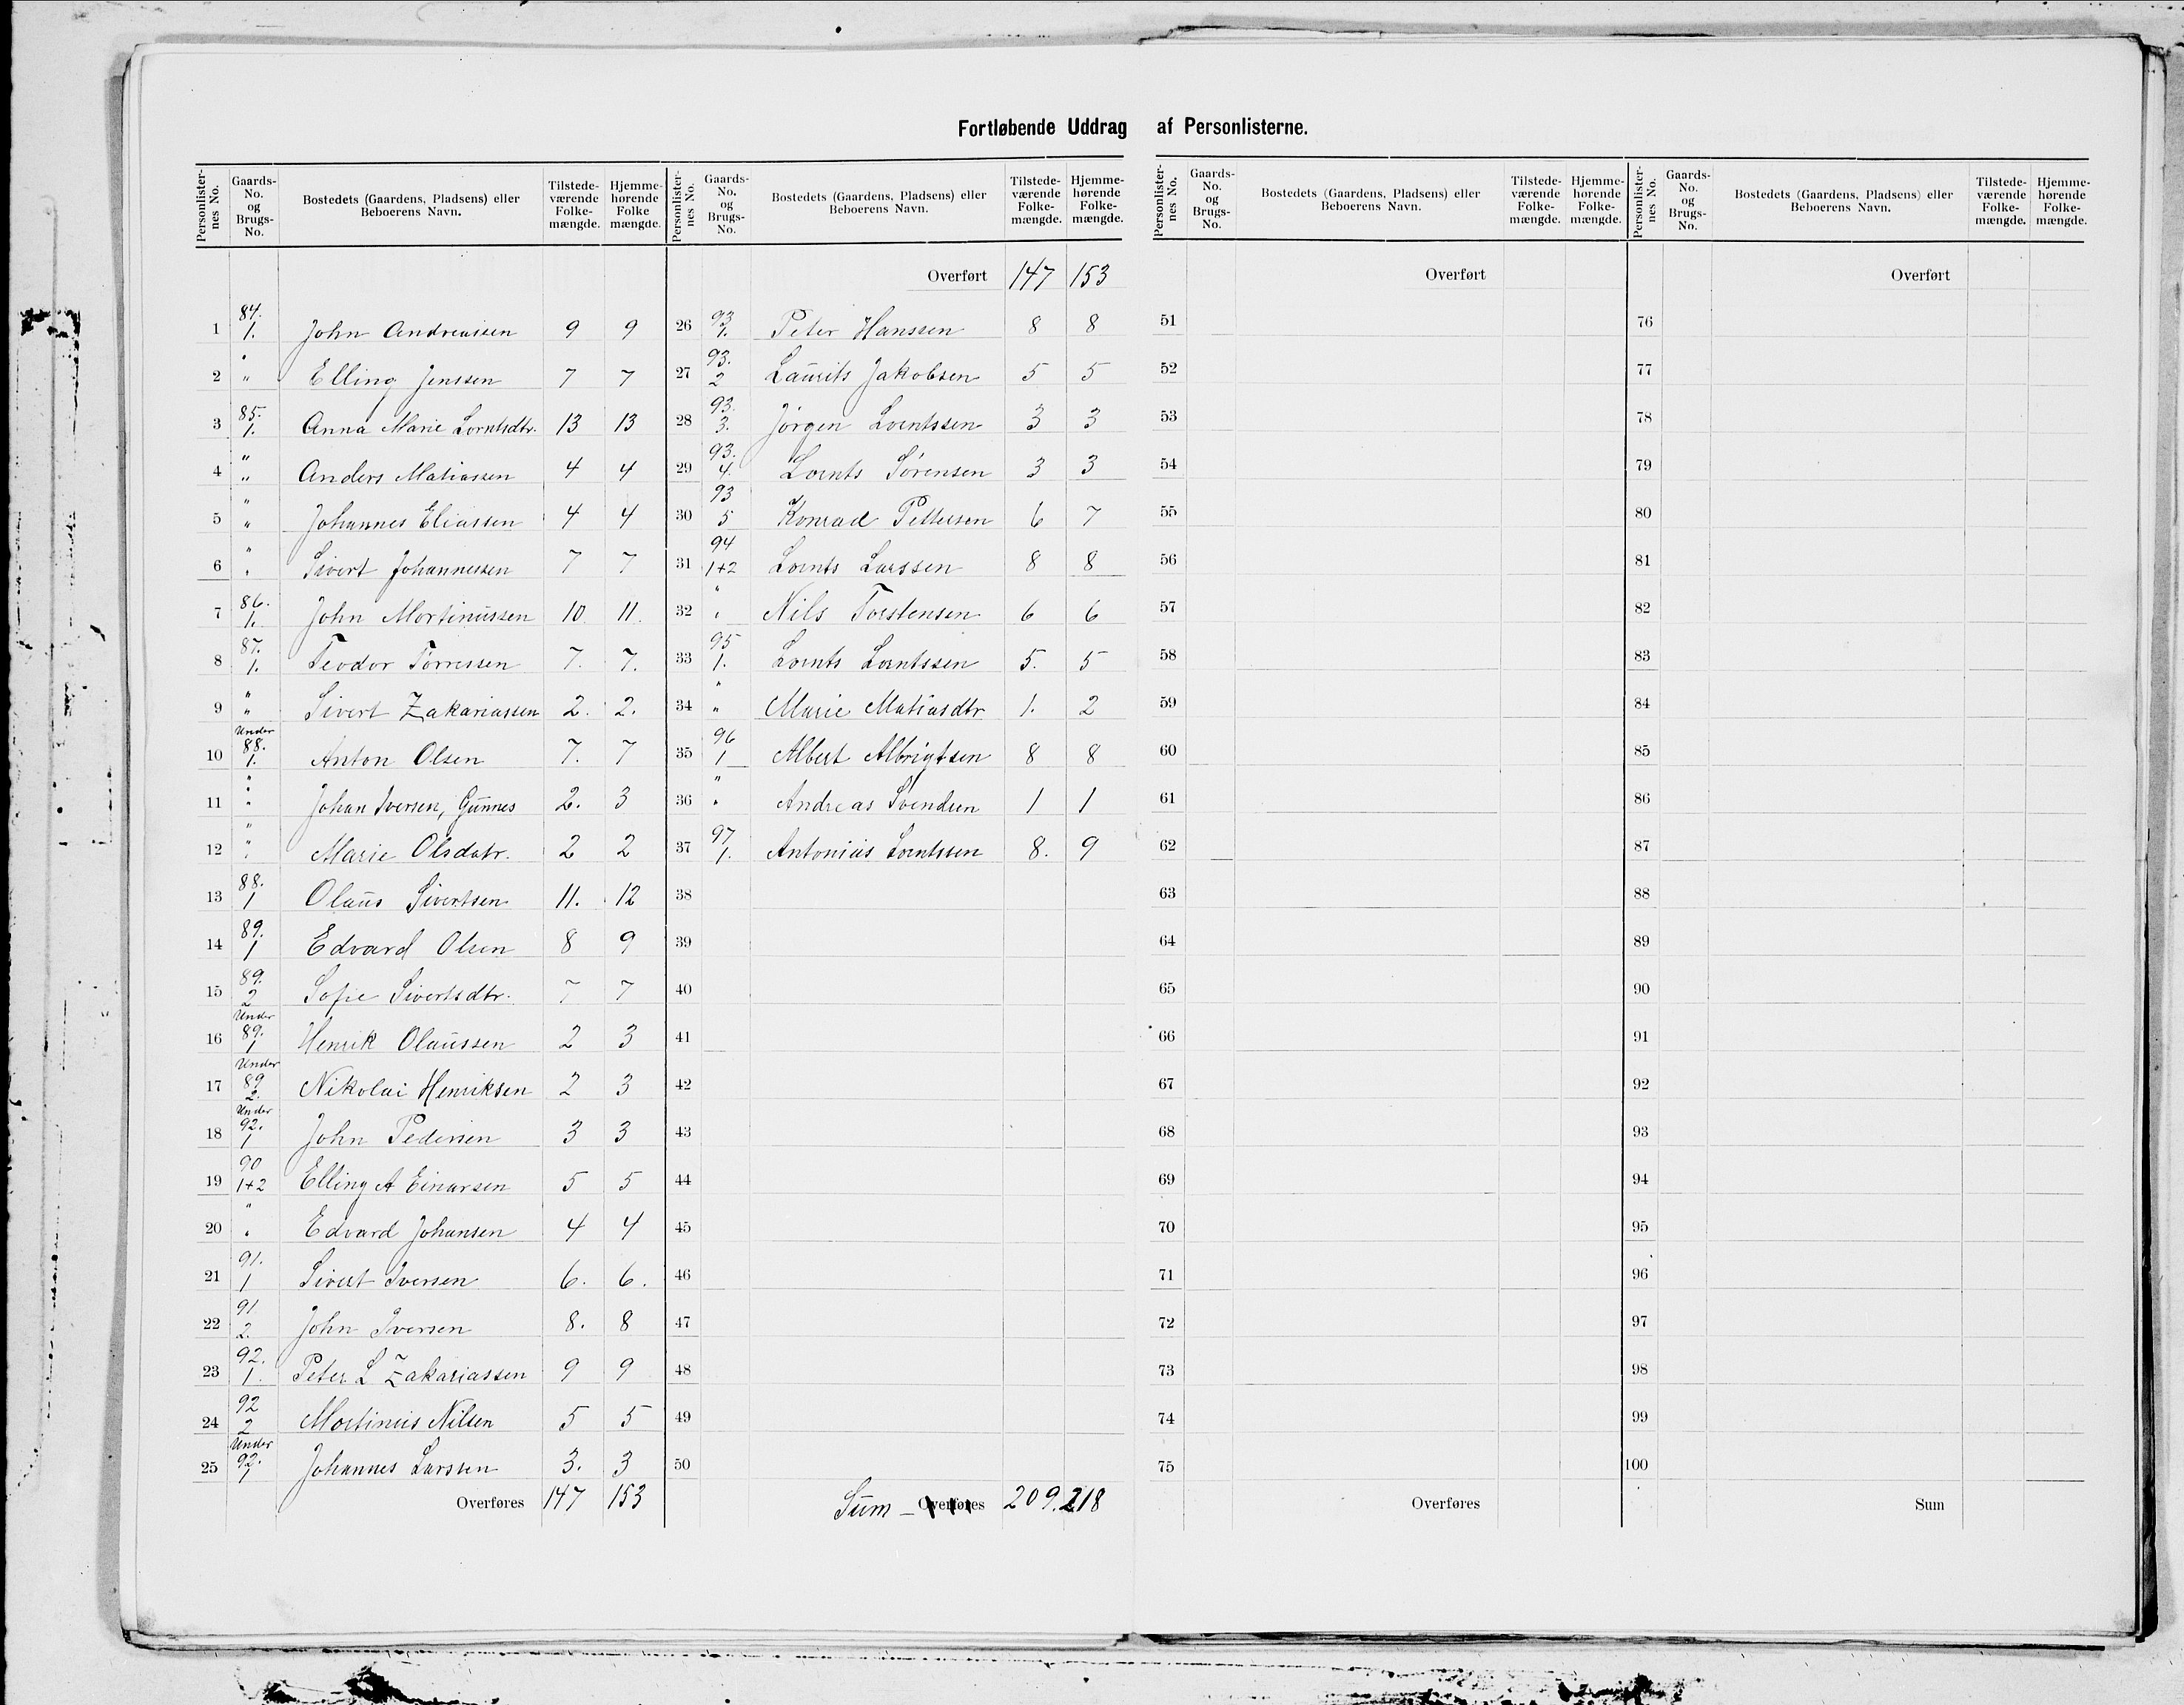 Fortløbende Uddrag af Personlisterne.
Personlister-nes No. Gaards-No. og Brugs-No. Bostedets (Gaardens, Pladsens) eller Beboerens Navn. Tilstede-værende Folke-mængde. Hjemme-hørende Folke mængde.
1 84. 1. John Andreassen 9 9
2 " " Elling Jenssen 7 7
3 85. 1. Anna Marie Lorntsdtr. 13 13
4 " " Anders Matiassen 4 4
5 " " Johannes Eliassen 4 4
6 " " Sivert Johannessen 7 7
7 86. 1. John Mortinussen 10. 11.
8 87. 1. Teodor Torressen 7. 7.
9 " " Sivert Zakariassen 2. 2.
10 Under 88. 1. Anton Olsen 7. 7
11 " " Johan Iversen, Gunnes 2. 3
12 " " Marie Olsdatr. 2 2
13 88. 1 Olaus Sivertsen 11. 12
14 89. 1 Edvard Olsen 8 9
15 89. 2 Sofie Sivertsdtr. 7 7
16 Under 89. 1 Henrik Olaussen 2 3
17 Under 89 2. Nikolai Henriksen 2 3
18 Under 92. 1 John Pedersen 3 3
19 90 1+2 Elling A Einarsen 5 5
20 " " Edvard Johansen 4 4
21 91. 1 Sivert Iversen 6. 6.
22 91 2. John Iversen 8. 8
23 92. 1. Peter L Zakariassen 9 9
24 92 2 Mortinus Nilsen 5 5
25 Under 92. 1 Johannes Larssen 3. 3
Overføres 147 153
Personlister-nes No. Gaards-No. og Brugs-No. Bostedets (Gaardens, Pladsens) eller Beboerens Navn. Tilstede-værende Folke-mængde. Hjemme-hørende Folke-mængde.
Overført 147 153
26 93 1. Peter Hanssen 8 8
27 93. 2 Laurits Jakobsen 5 5
28 93. 3. Jørgen Lorntssen 3 3
29 93. 4. Lornts Sørensen 3 3
30 93 5 Konrad Pettersen 6 7
31 94 1+2 Lornts Larssen 8 8
32 " " Nils Torstensen 6 6
33 95 1. Lornts Lorntssen 5. 5
34 " " Marie Matiasdtr 1. 2
35 96 1 Albert Albrigtsen 8 8
36 " " Andreas Svendsen 1 1
37 97 1. Antonius Lorntssen 8. 9
38
39
40
41
42
43
44
45
46
47
48
49
50
Sum - Overføres 209. 218
Personlister-nes No. Gaards-No. og Brugs-No. Bostedets (Gaardens, Pladsens) eller Beboerens Navn. Tilstede-værende Folke-mængde. Hjemme-hørende Folke-mængde.
Overført
51
52
53
54
55
56
57
58
59
60
61
62
63
64
65
66
67
68
69
70
71
72
73
74
75
Overføres
Personlister-nes No. Gaards-No. og Brugs-No. Bostedets (Gaardens, Pladsens) eller Beboerens Navn. Tilstede-værende Folke-mængde. Hjemme-hørende Folke-mængde.
Overført
76
77
78
79
80
81
82
83
84
85
86
87
88
89
90
91
92
93
94
95
96
97
98
99
100
Sum